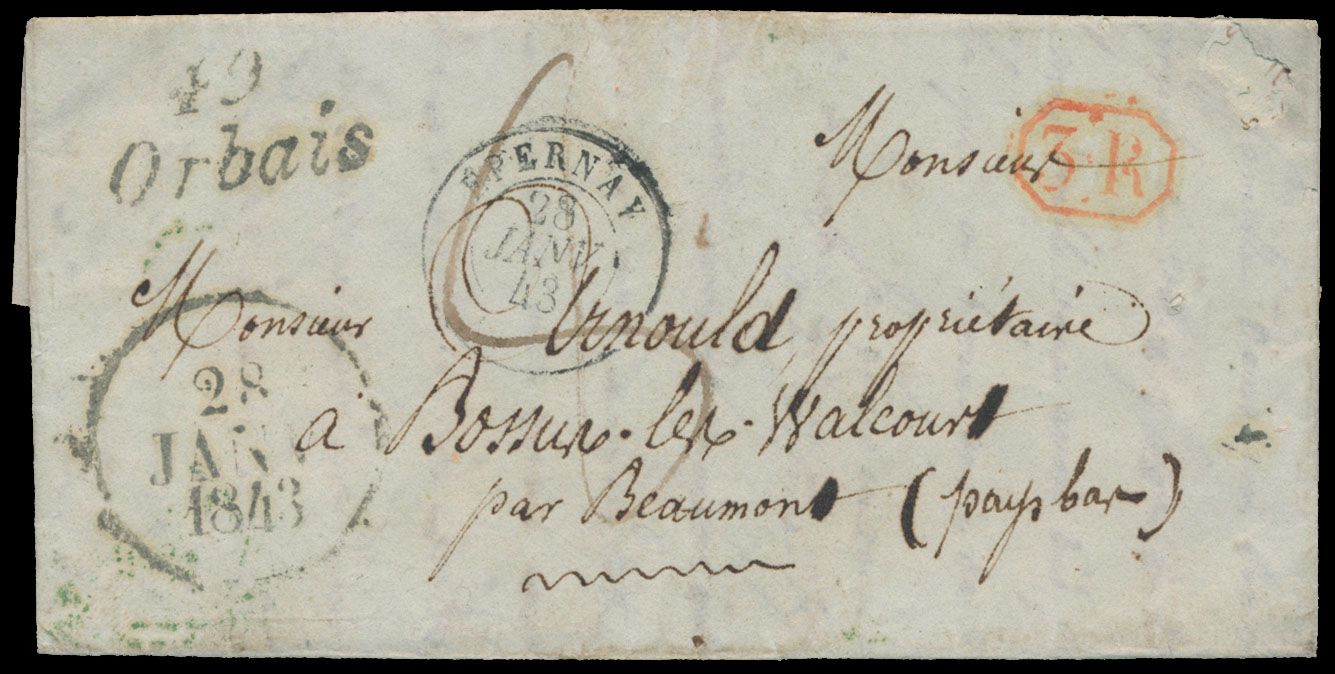 49
Orbais
EPERNAY
28
JANV
43
3. R
Monsieur
Monsieur Arnould, propriétaire
à Bossus-lez-Walcourt
par Beaumont (pays bas)
28
JANV
1843